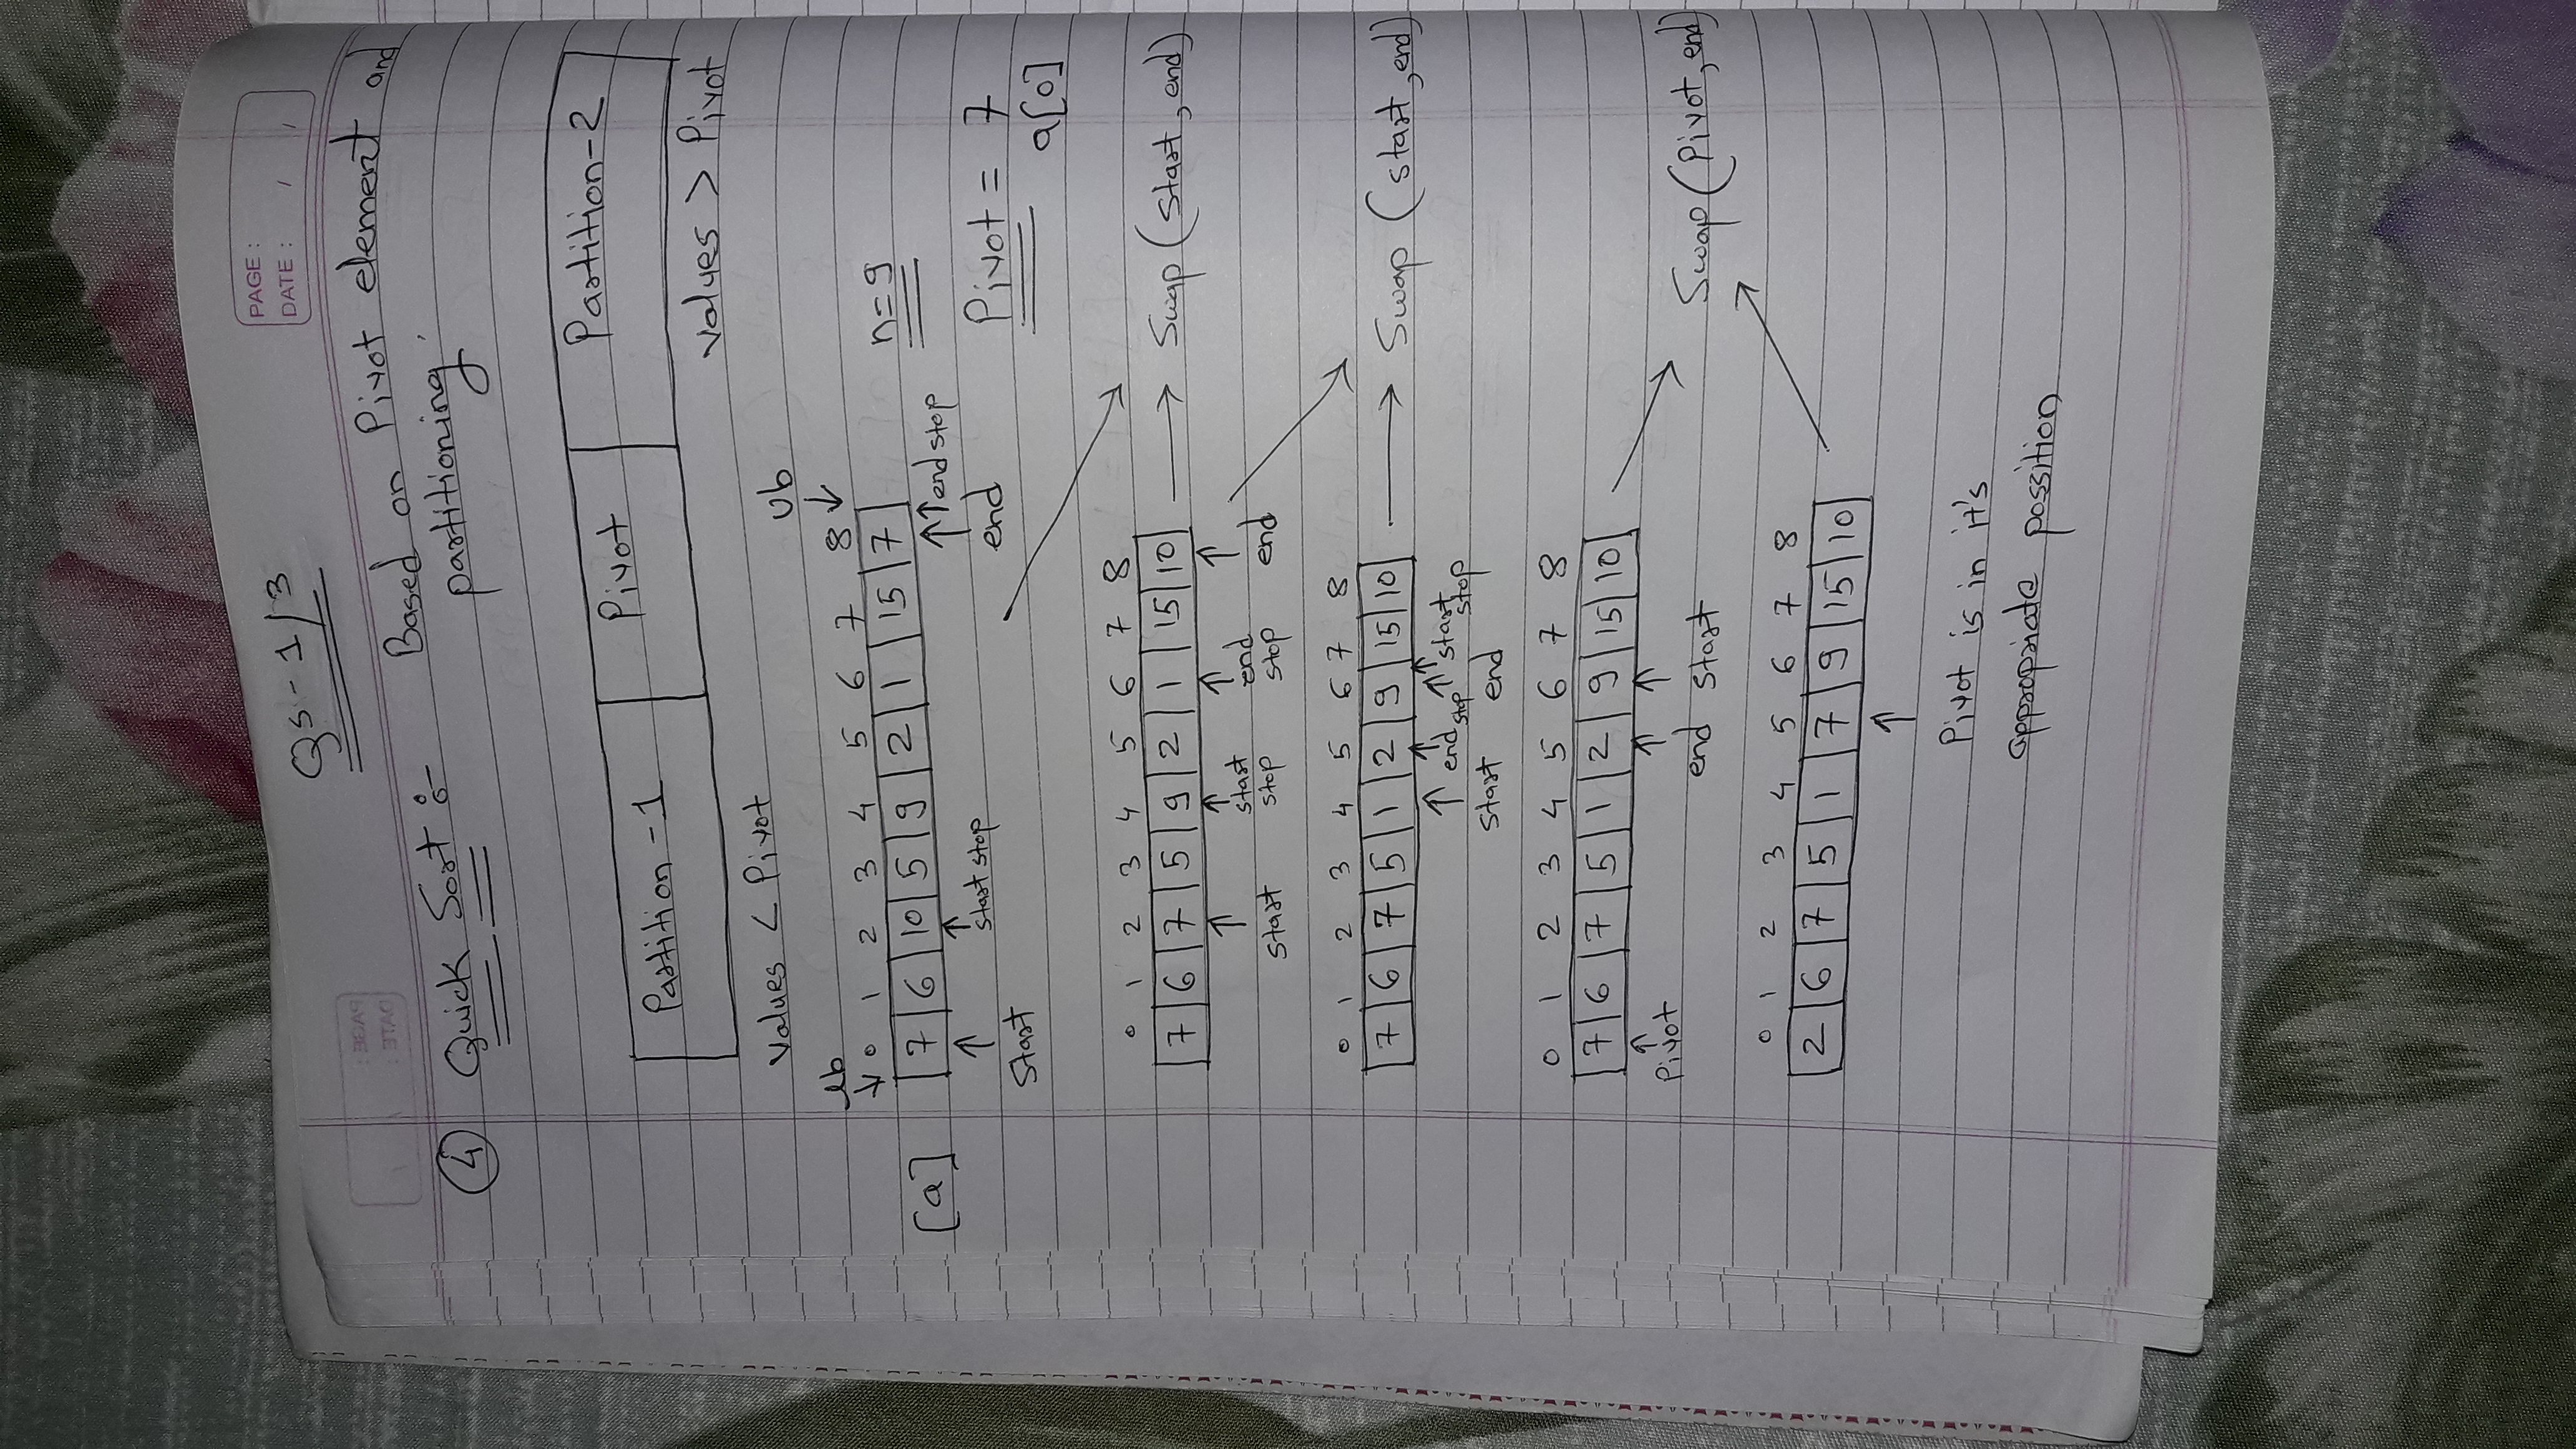 PAGE :
DATE : / /
Qs - 1/3
④ Quick Sort :- Based on Pivot element and
partitioning.
Partition - 1 Pivot Partition - 2
values < Pivot values > Pivot
lb Ub
0 1 2 3 4 5 6 7 8
[a] 7 6 10 5 9 2 1 15 7 n = 9
↑ start ↑ start stop ↑ end ↑ end stop
Pivot = 7
a[0]
0 1 2 3 4 5 6 7 8
7 6 7 5 9 2 1 15 10 → Swap (start, end)
↑ start ↑ start stop ↑ end stop ↑ end
0 1 2 3 4 5 6 7 8
7 6 7 5 1 2 9 15 10 → Swap (start, end)
↑ start ↑ end stop ↑ end ↑ start stop
0 1 2 3 4 5 6 7 8
7 6 7 5 1 2 9 15 10
↑ Pivot ↑ end ↑ start
Swap (Pivot, end)
0 1 2 3 4 5 6 7 8
2 6 7 5 1 7 9 15 10
↑
Pivot is in it's
appropriate possition